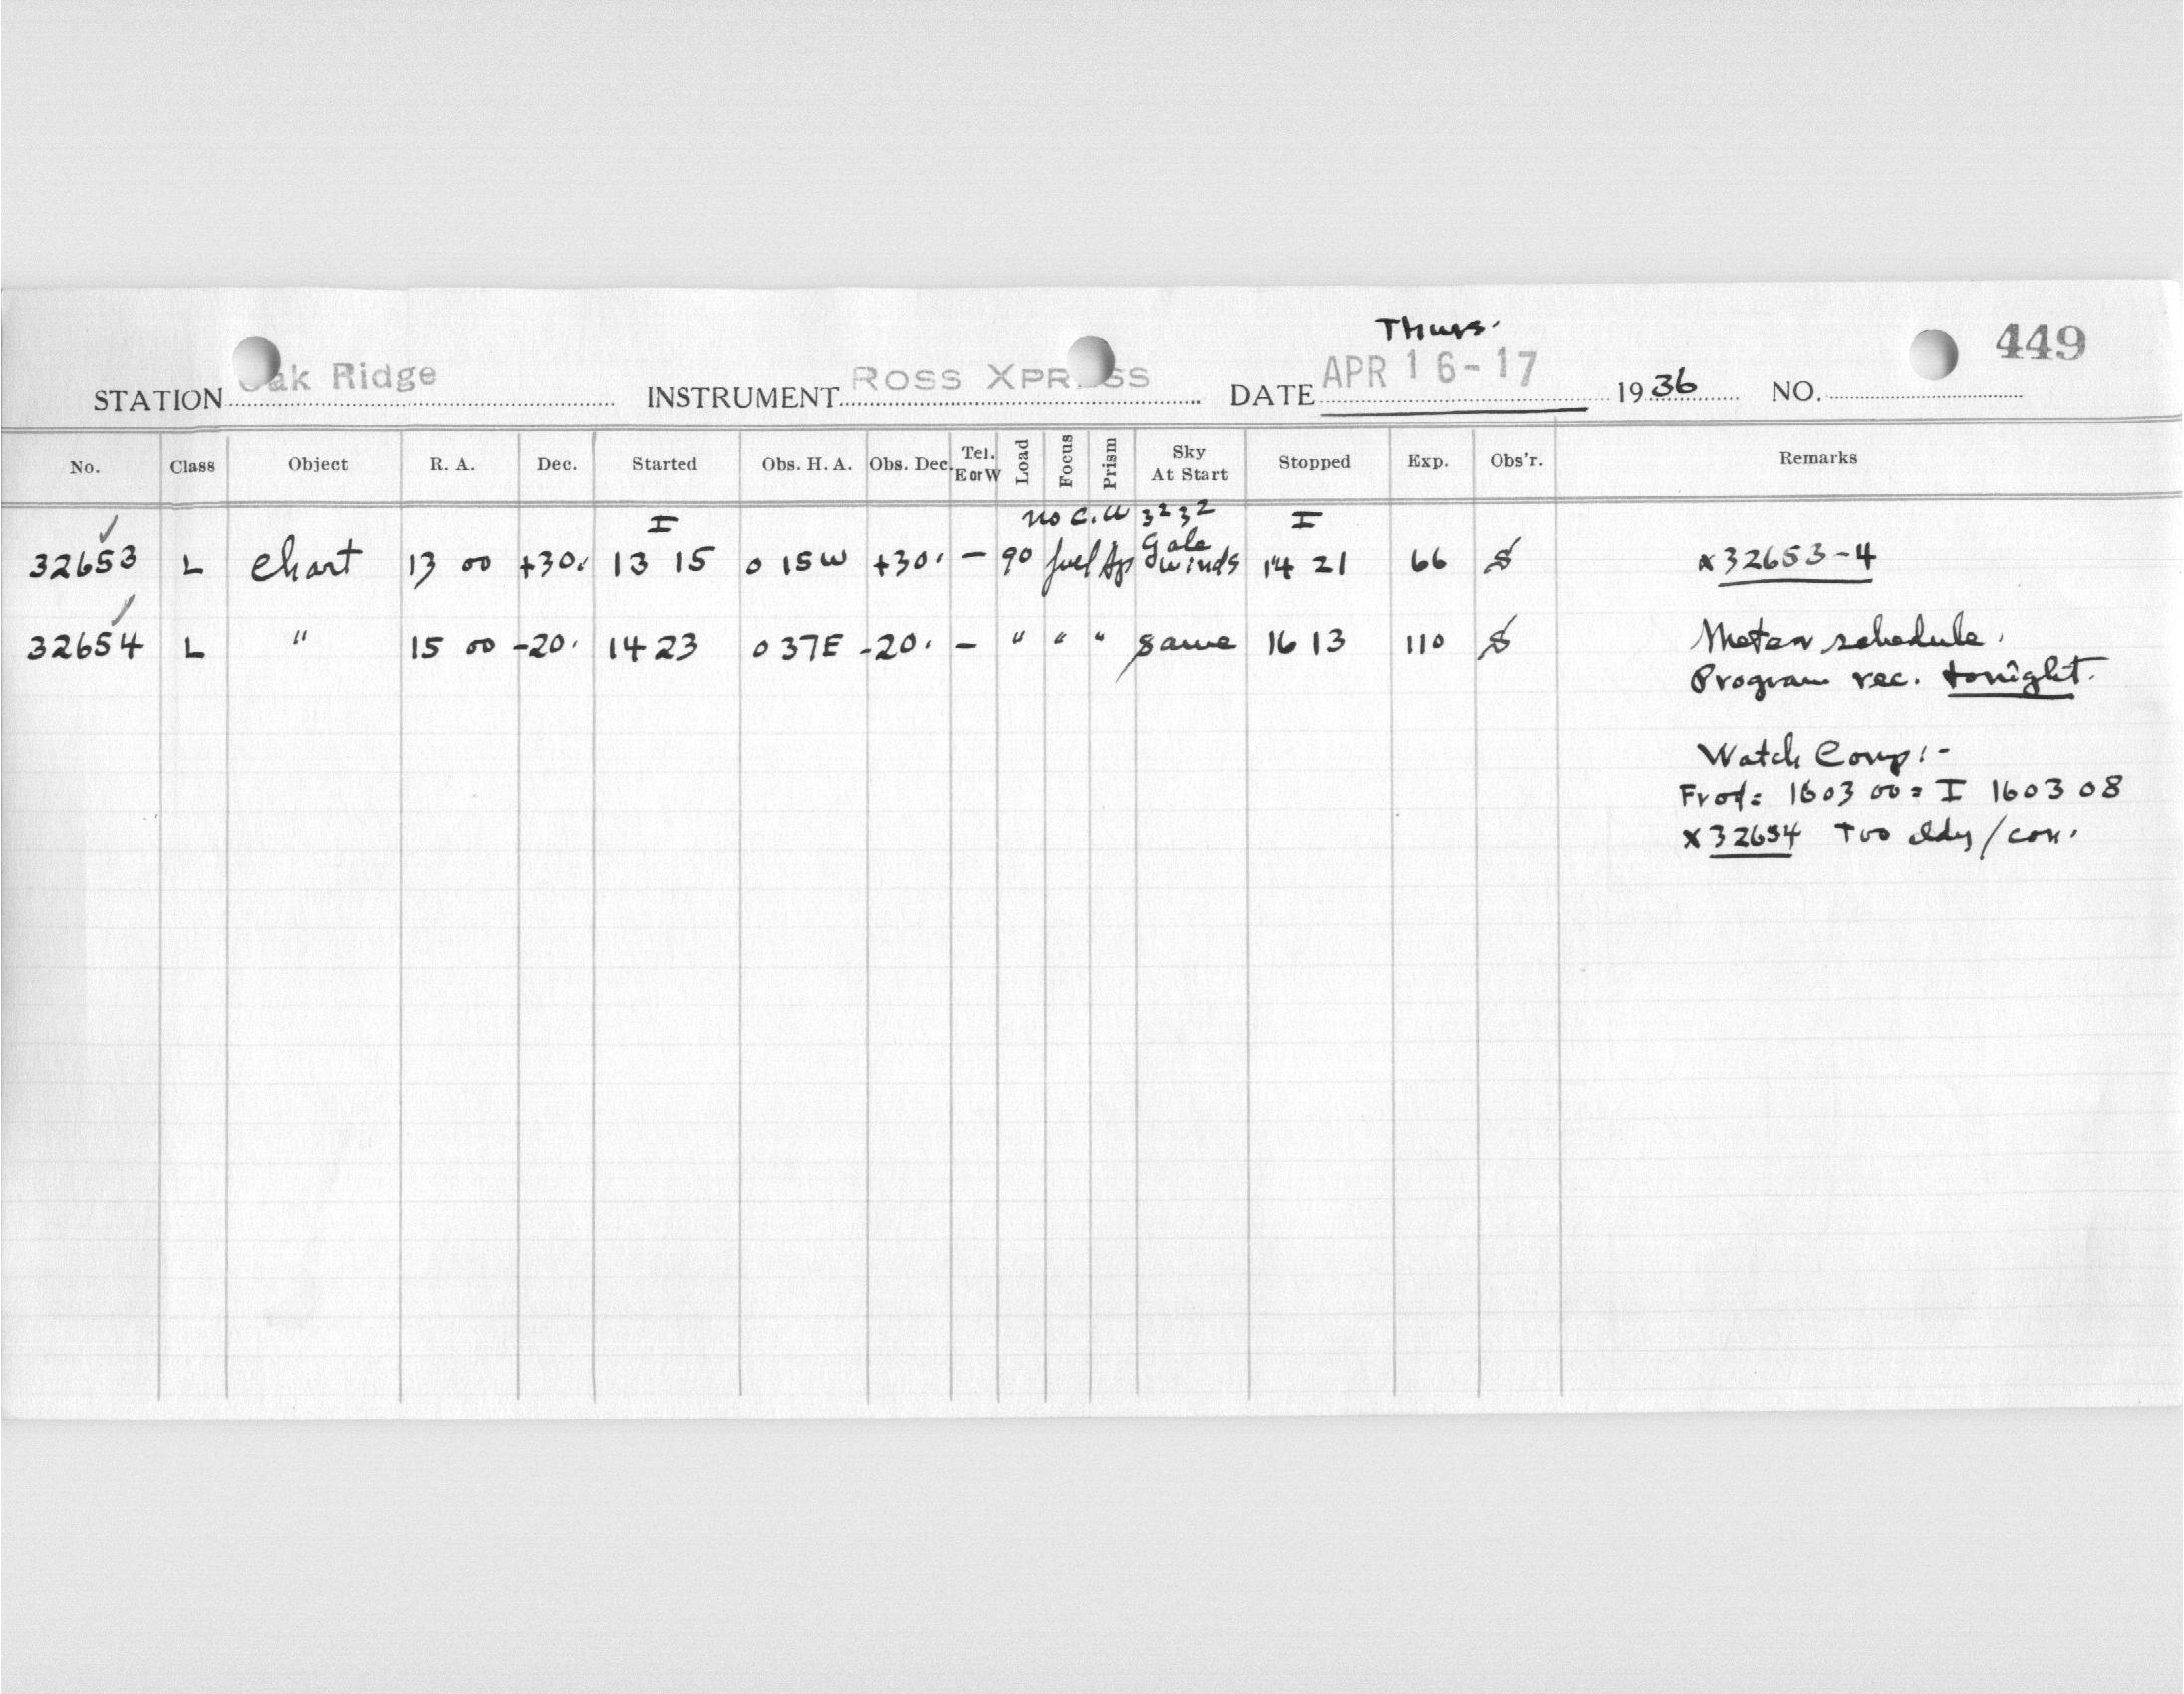 Thurs.
STATION Oak Ridge INSTRUMENT ROSS XPRESS DATE APR 16-17 1936 NO. 449
No. Class Object R. A. Dec. Started Obs. H. A. Obs. Dec. Tel. E or W Load Focus Prism Sky At Start Stopped Exp. Obs'r. Remarks
I no c. 3232 I
32653 L Chart 13 00 +30. 13 15 0 15W +30. - 90 full Ap gale winds 14 21 66 x32653-4
32654 L " 15 00 -20. 14 23 0 37E -20. - " " " same 16 13 110 Meteor schedule.
Program rec. tonight.
Watch Comp:-
Frod: 1603 00 = I 1603 08
x32654 Too cldy/con.